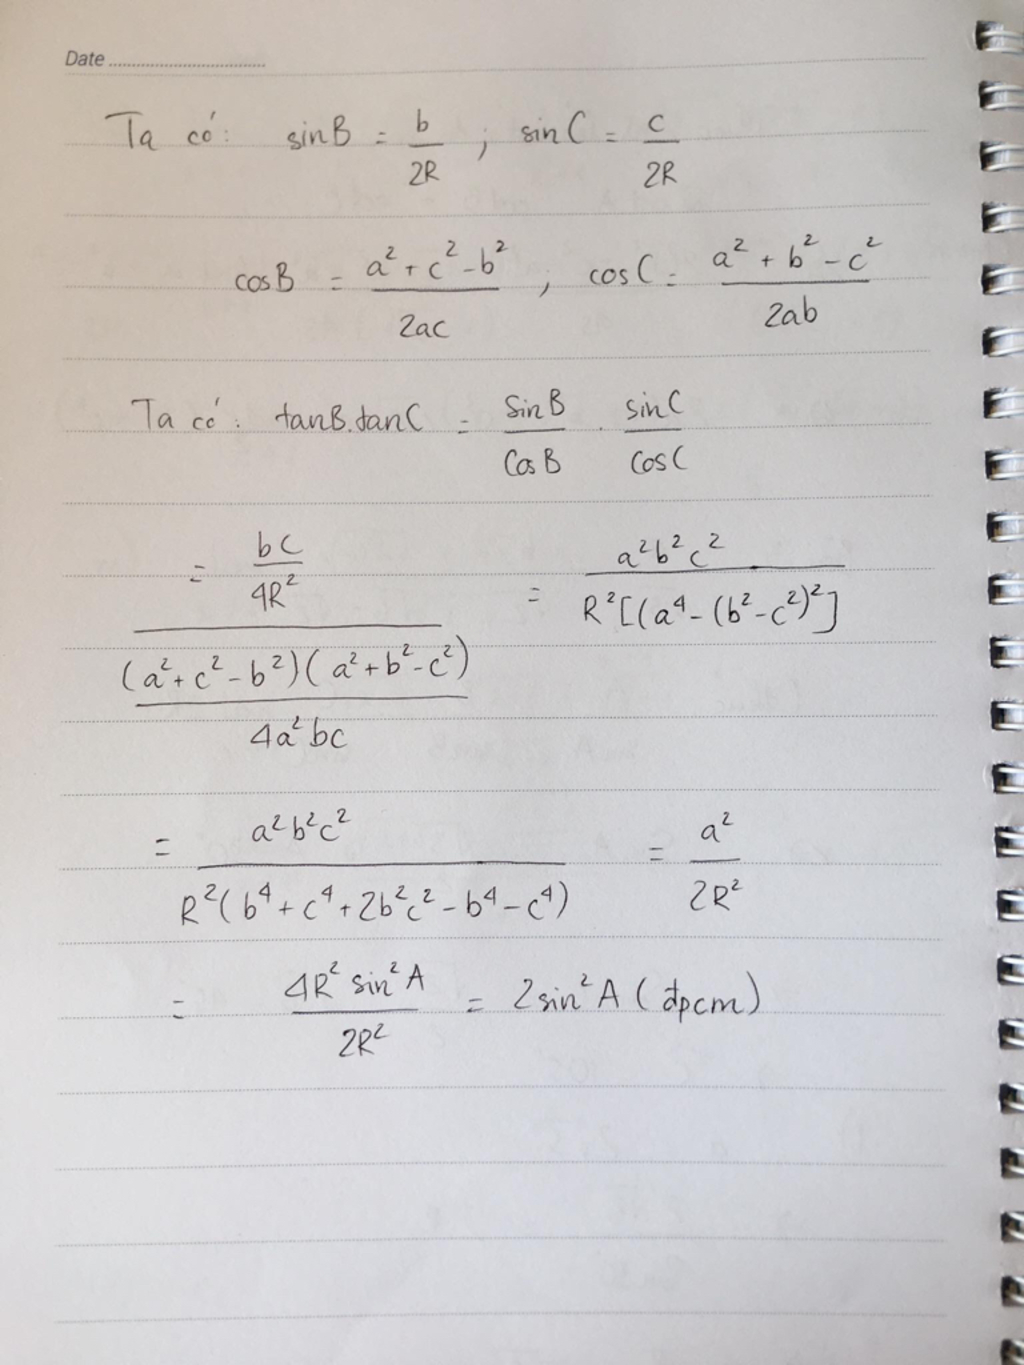 Date
Ta có: sinB = b/2R ; sinC = c/2R
cosB = (a² + c² - b²)/2ac , cosC = (a² + b² - c²)/2ab
Ta có: tanB.tanC = SinB/CosB . sinC/CosC
= (bc/4R²)/((a² + c² - b²)(a² + b² - c²)/4a²bc) = a²b²c²/R²[(a⁴ - (b² - c²)²]
= a²b²c²/R²(b⁴ + c⁴ + 2b²c² - b⁴ - c⁴) = a²/2R²
= 4R² sin²A/2R² = 2sin²A (đpcm)